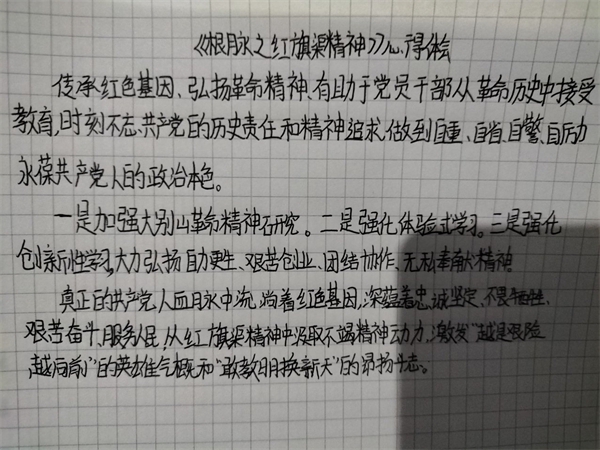 《根脉之红旗渠精神》心得体会
传承红色基因、弘扬革命精神、有助于党员干部从革命历史中接受
教育,时刻不忘共产党的历史责任和精神追求,做到自重、自省、自警、自励
永葆共产党人的政治本色。
一是加强大别山革命精神研究。二是强化体验式学习。三是强化
创新性学习,大力弘扬自助更生、艰苦创业、团结协作、无私奉献精神
真正的共产党人血脉中流淌着红色基因,深蕴着忠诚坚定、不畏牺牲、
艰苦奋斗、服务人民,从红旗渠精神中汲取不竭精神动力,激发"越是艰险
越向前"的英雄气概和"敢教日月换新天"的昂扬斗志。